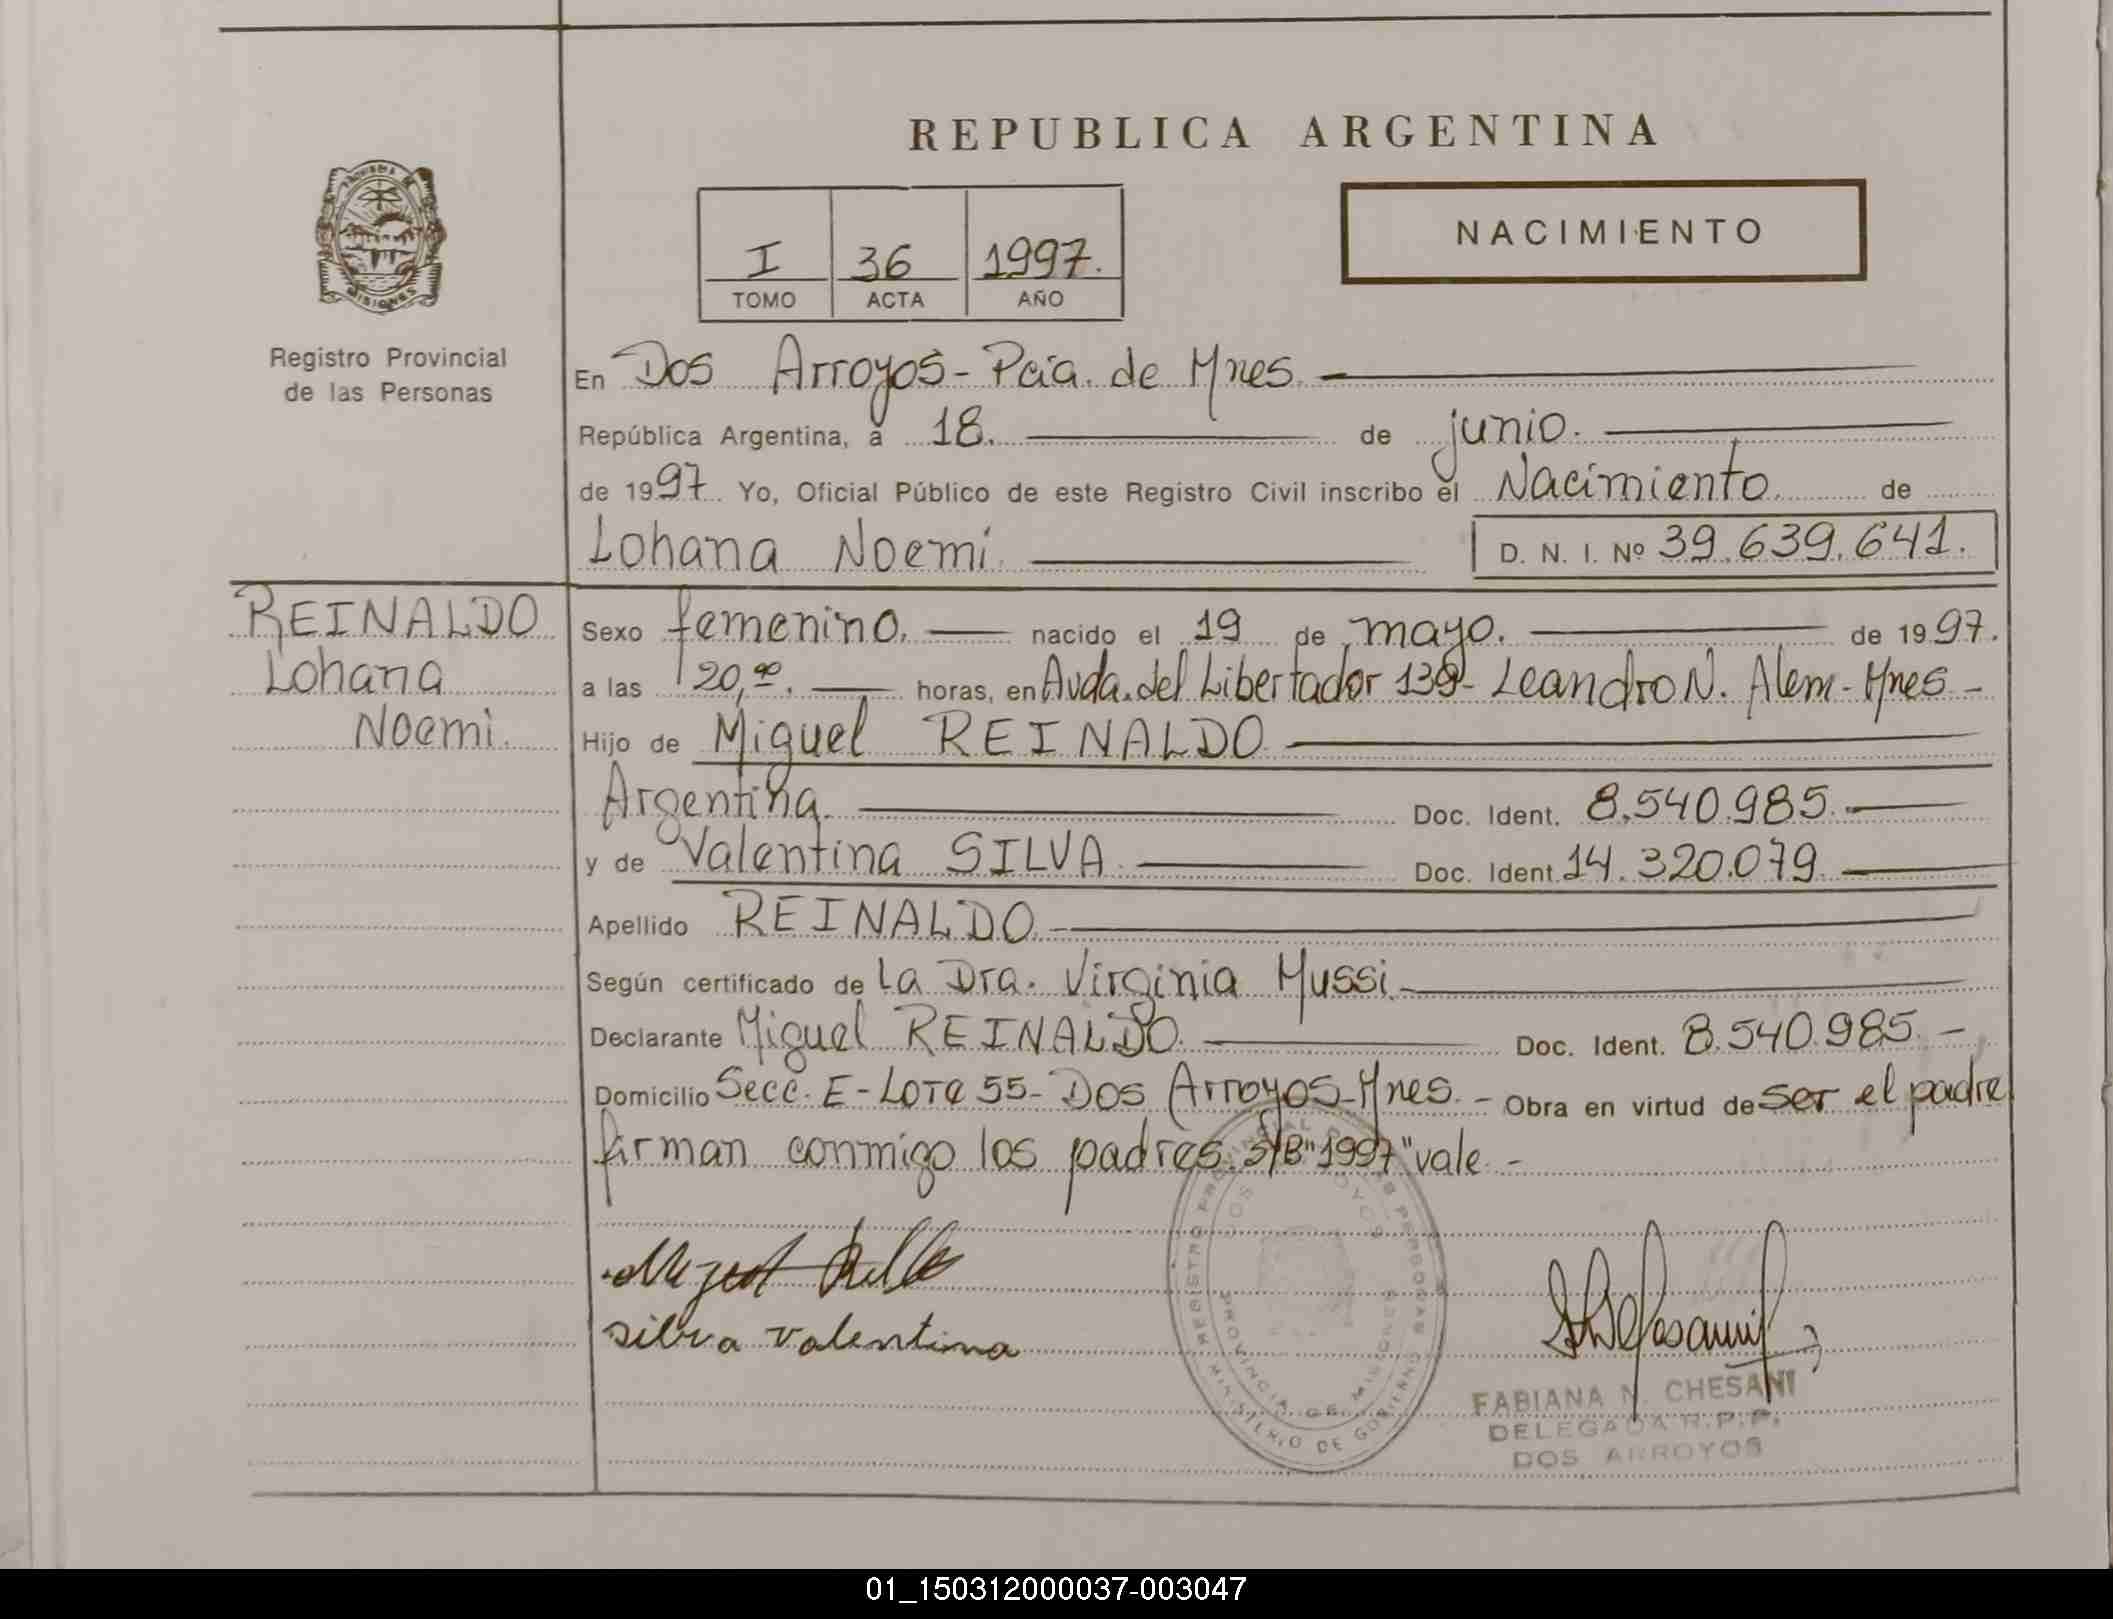 REPUBLICA ARGENTINA
PROVINCIA DE
MISIONES
Registro Provincial
de las Personas
I 36 1997.
TOMO ACTA AÑO
NACIMIENTO
En Dos Arroyos - Pcia. de Mnes.
República Argentina, a 18. de junio.
de 1997. Yo, Oficial Público de este Registro Civil inscribo el Nacimiento. de
Lohana Noemi. D. N. I. Nº 39.639.641.
REINALDO
Lohana
Noemi.
Sexo femenino. nacido el 19 de mayo. de 1997.
a las 20,00. horas, en Avda. del Libertador 139- Leandro N. Alem - Mnes -
Hijo de Miguel REINALDO
Argentina. Doc. Ident. 8.540.985.-
y de Valentina SILVA Doc. Ident. 14.320.079.
Apellido REINALDO
Según certificado de La Dra. Virginia Mussi
Declarante Miguel REINALDO. Doc. Ident. 8.540.985.-
Domicilio Secc. E - Lote 55 - Dos Arroyos - Mnes. - Obra en virtud de ser el padre
firman conmigo los padres. S/B "1997" vale. -
silva valentina
REGISTRO PROVINCIAL DE LAS PERSONAS
DOS ARROYOS
PROVINCIA DE MISIONES
MINISTERIO DE GOBIERNO
FABIANA N. CHESANI
DELEGADA R.P.P.
DOS ARROYOS
01_150312000037-003047